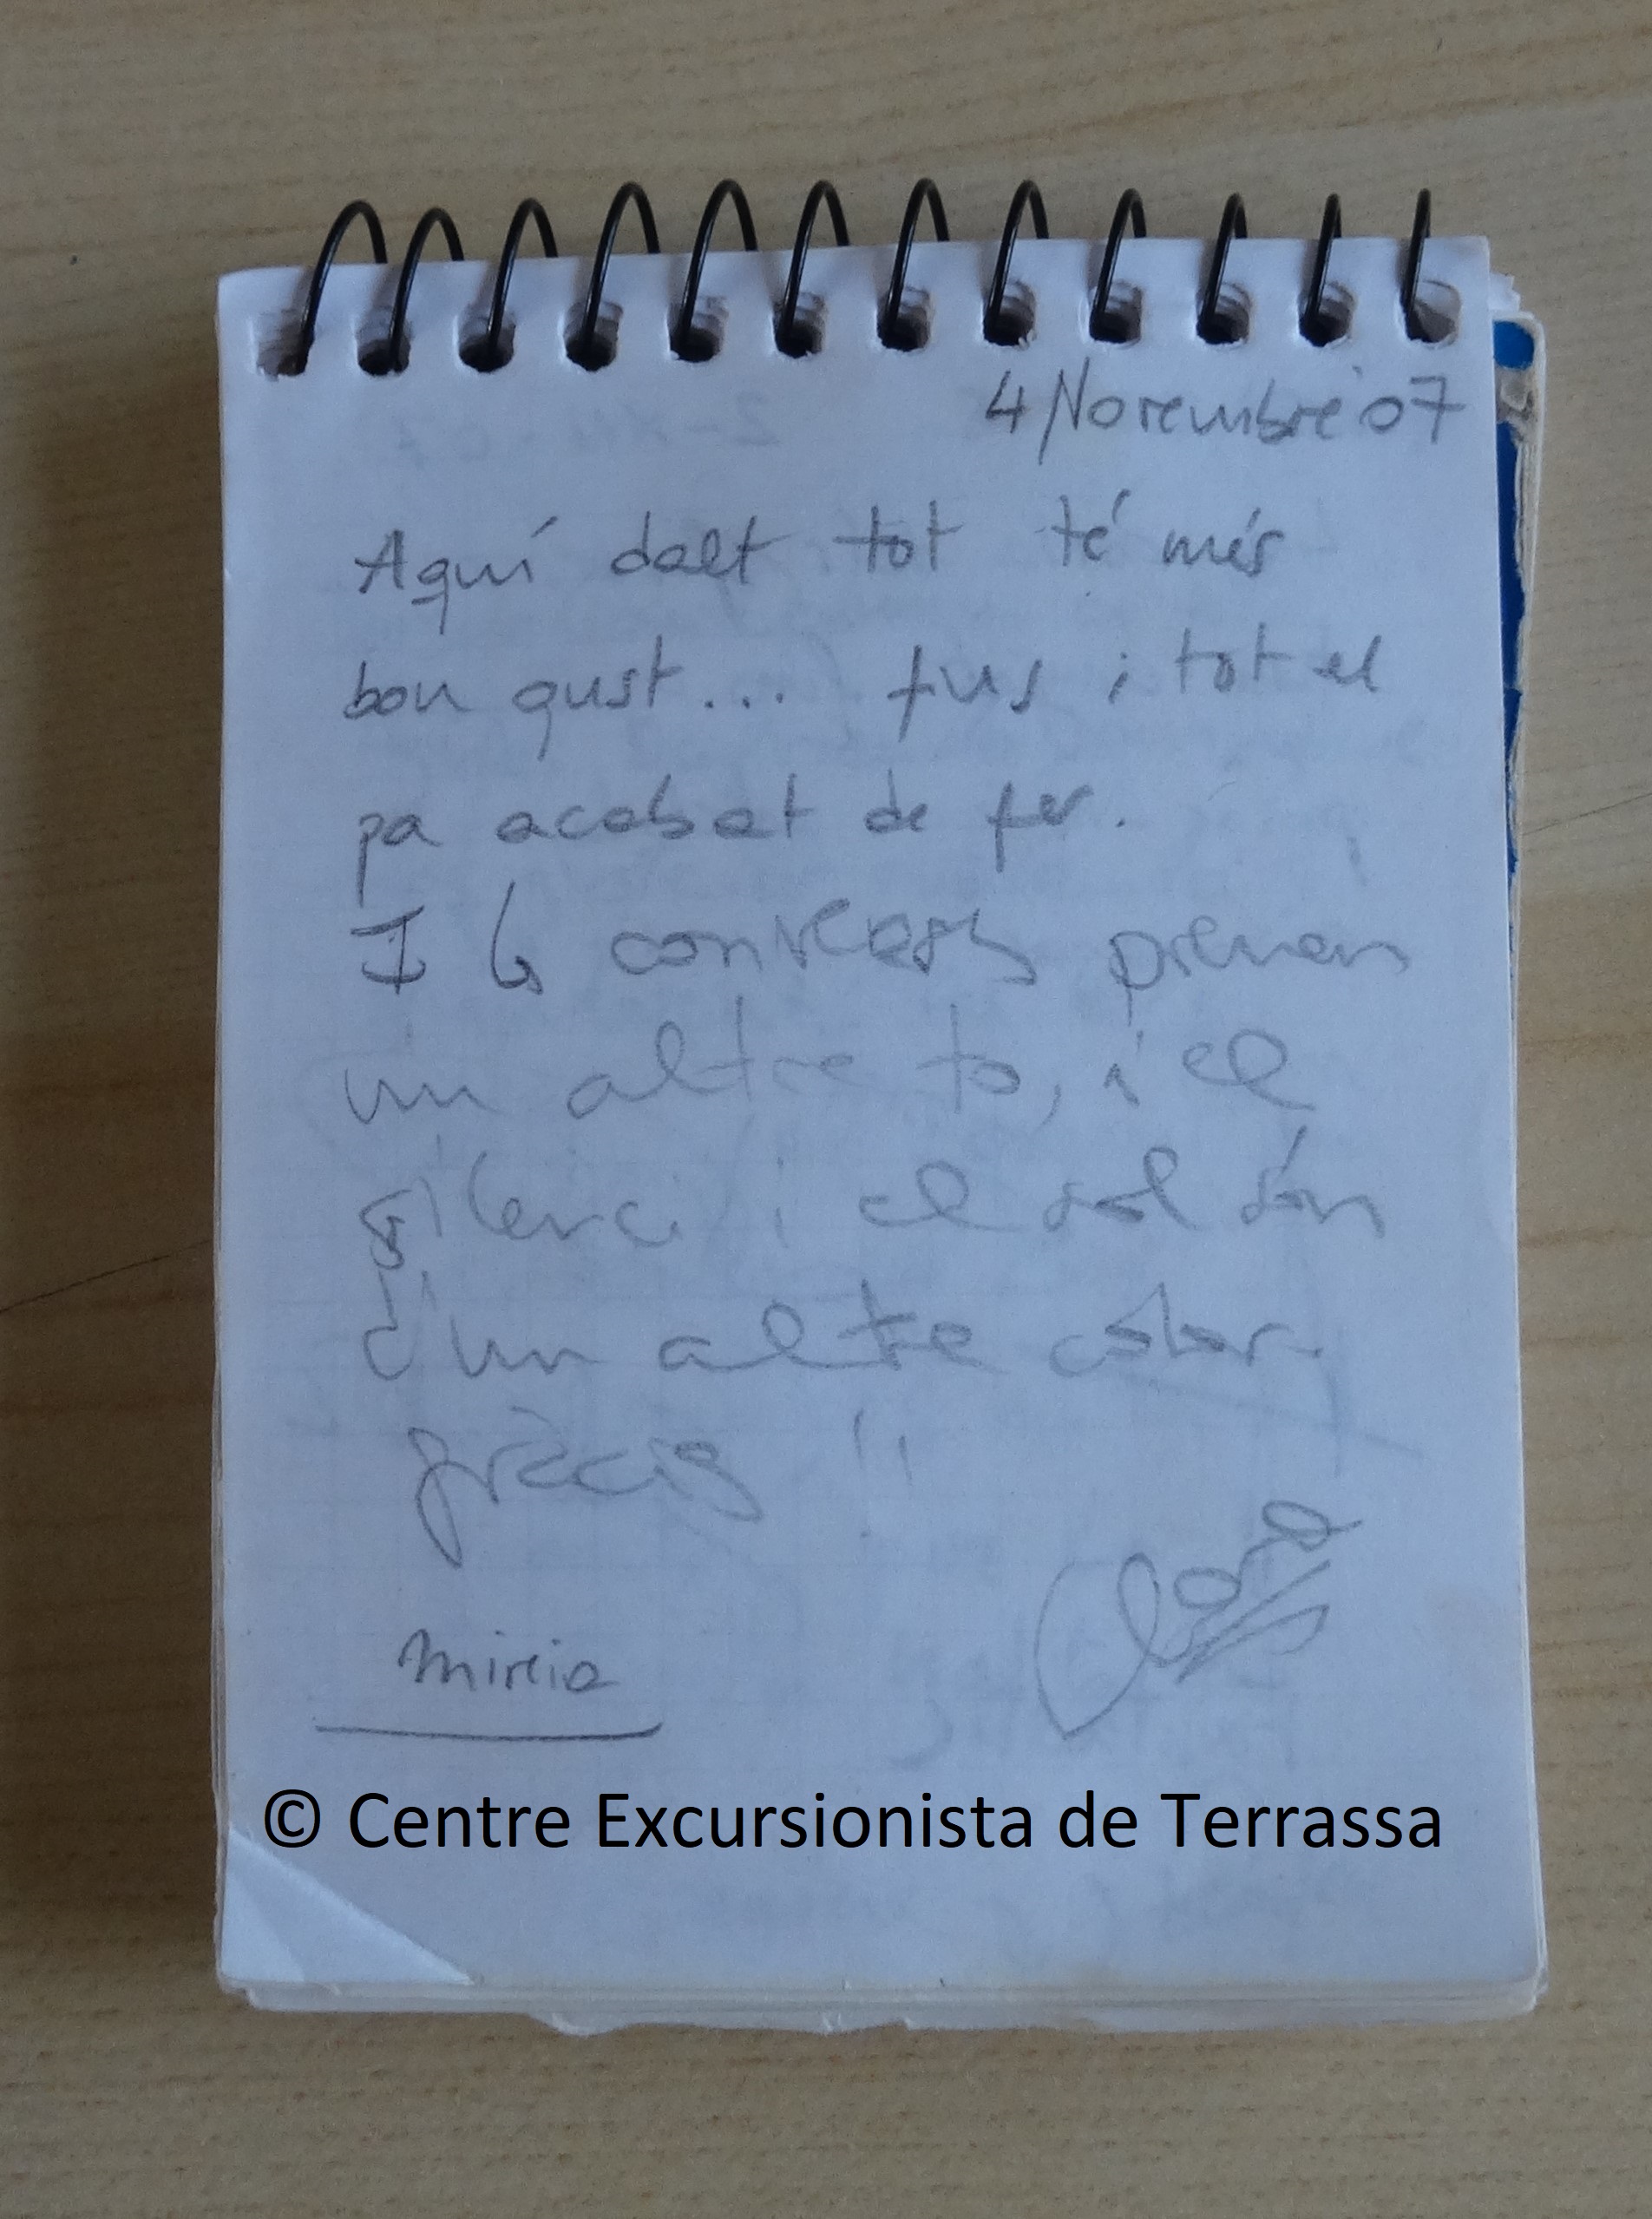 4 Novembre '07
Aquí dalt tot té més
bon gust... fins i tot el
pa acabat de fer.
I les converses prenen
un altre to, i el
silenci i el sol són
d'un altre color.
gràcies !!
Mireia
© Centre Excursionista de Terrassa